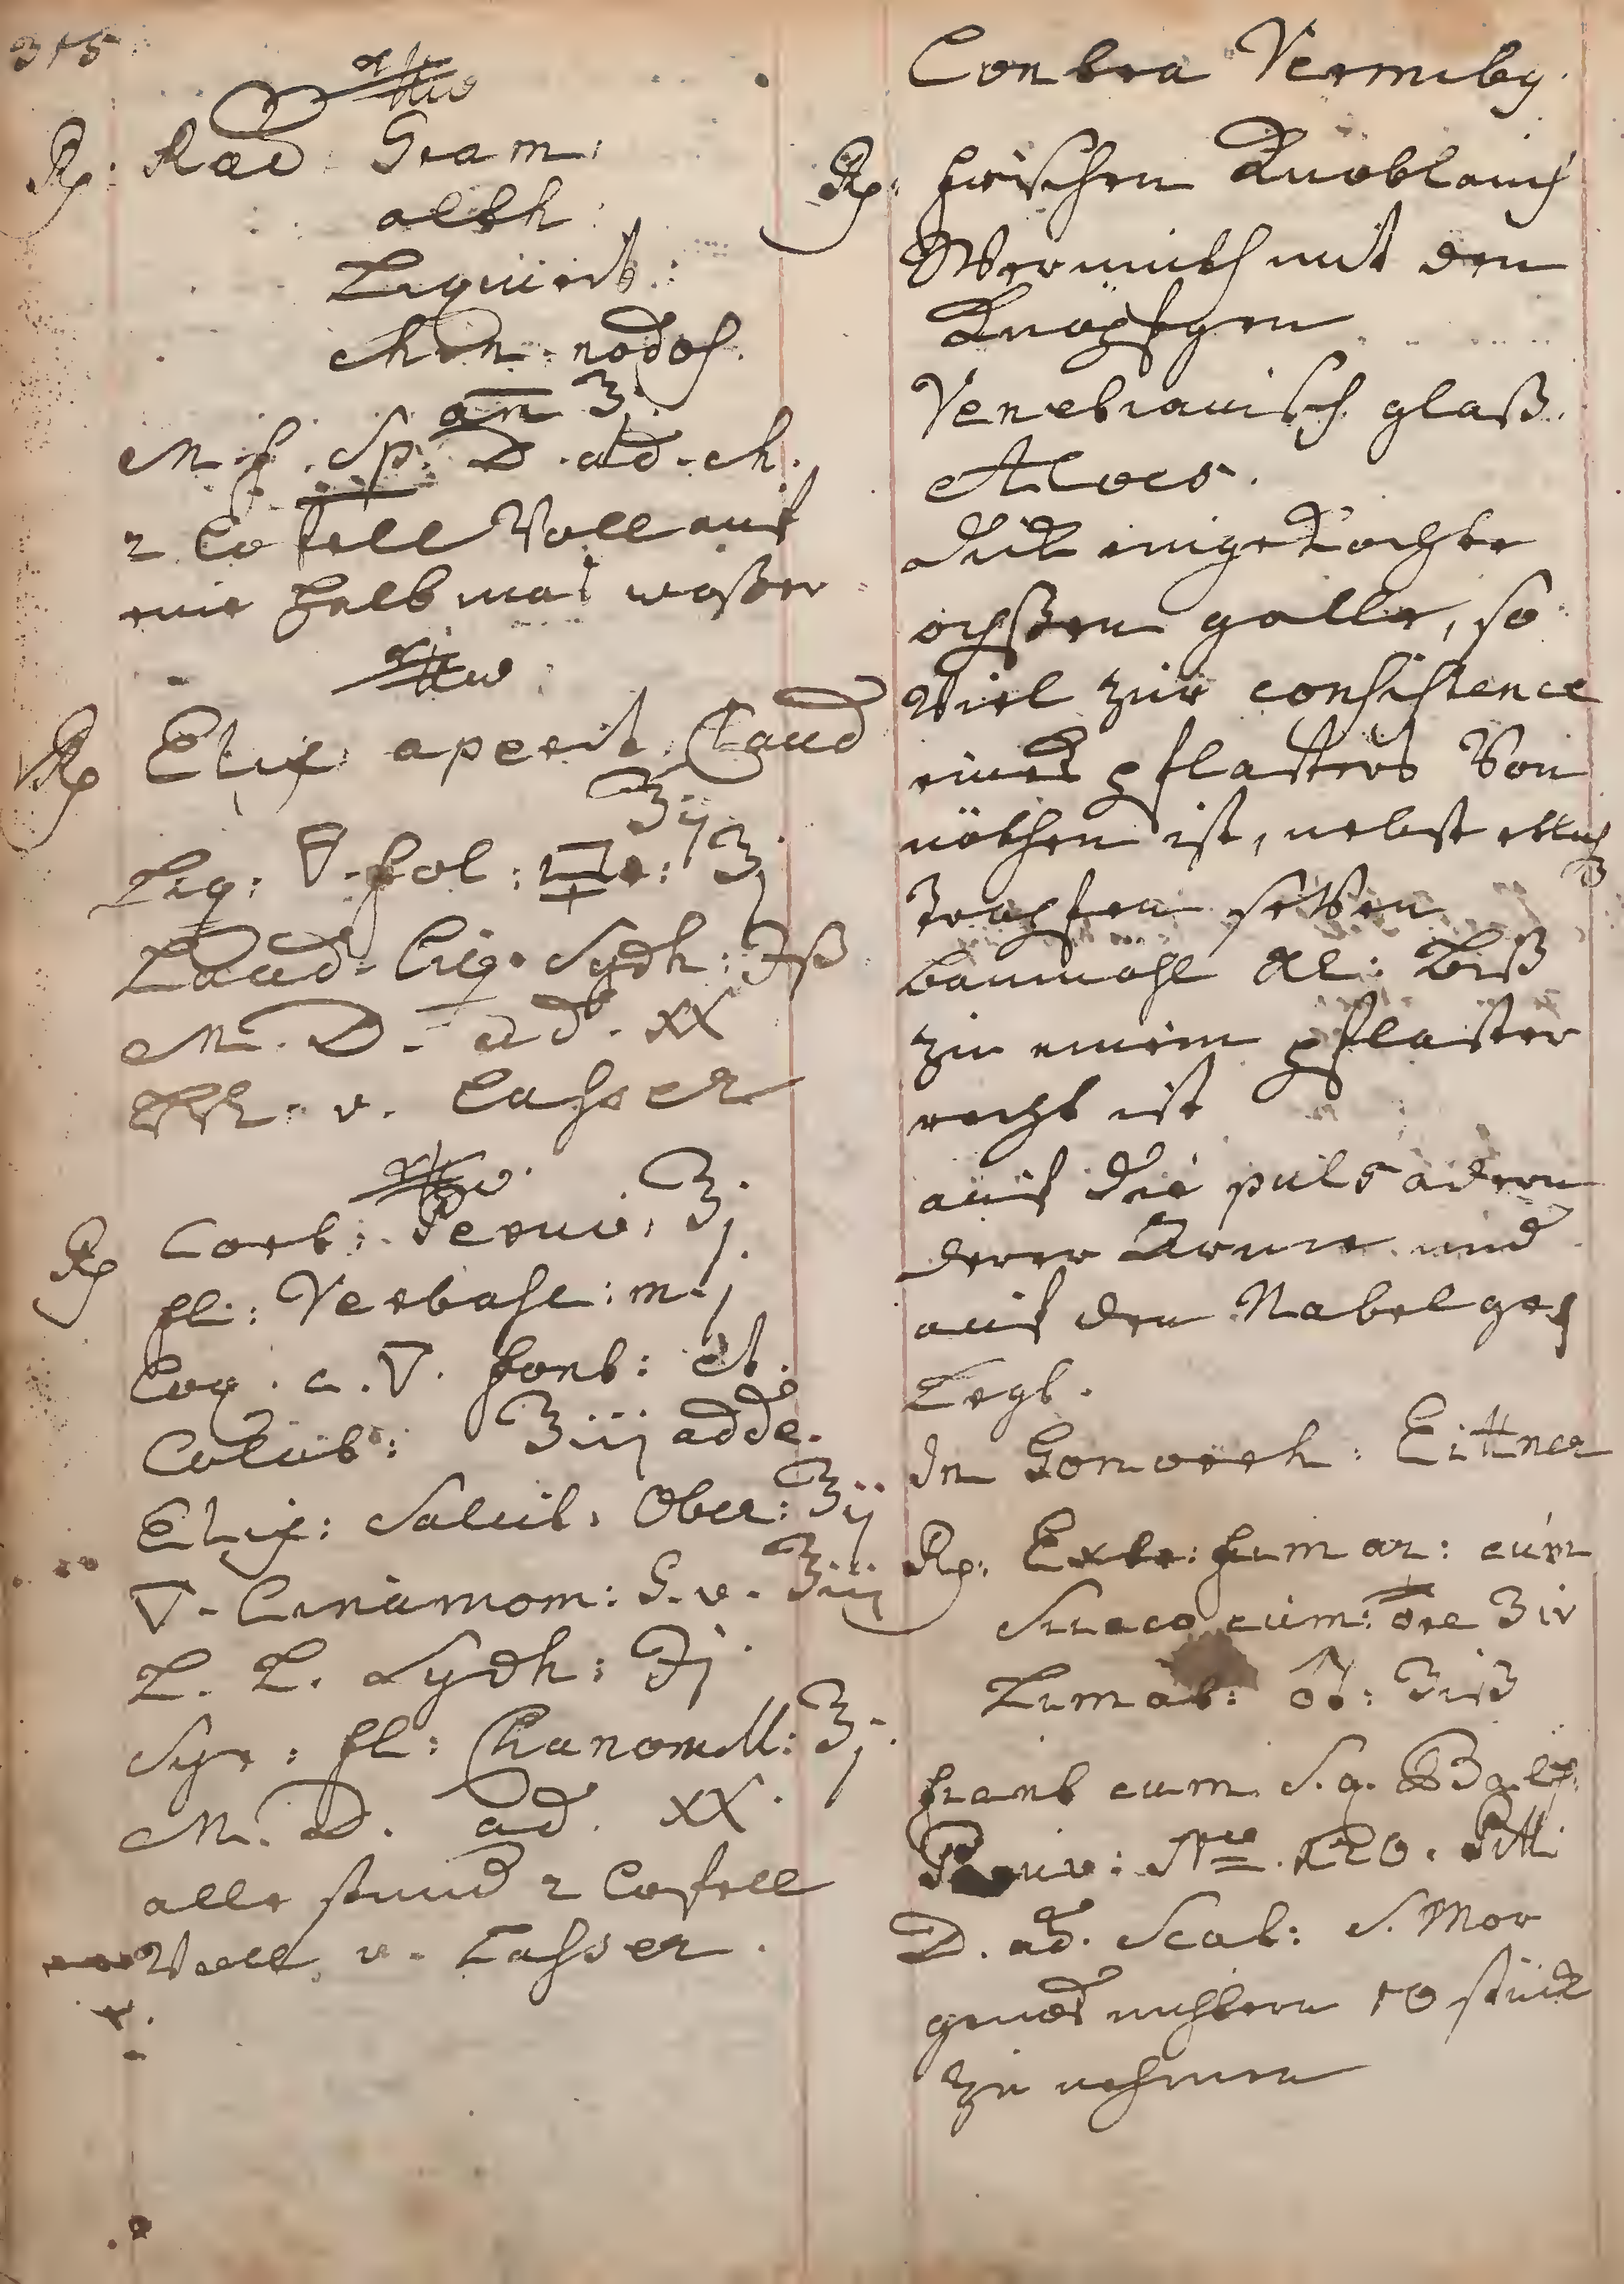 315
Rp. Rad. Gram:
alth:
Liquirit:
chin. nodos.
an ʒj.
M. f. Sp. D. ad. ch.
2 Coffell Voll auf
eine halb mas waßer
Rp Elix: aperit. Claud
ʒij
Liq: ▽ fol: ʒj
Laud. Liq. Sydh: ʒß
M. D. ad. XX
v. Casser
Rp Cort: Peruv: ʒj.
fl: Verbasc: m.j
Coq. c. ▽. font: et.
Colat: ʒiij adde.
Elix: Salut. Ober: ʒij
▽. Cinamom: S. v. ʒiij
L. L. Sydh: ʒj
Syr: fl: Chamomill: ʒj.
M. D. ad. XX.
alle stund 2 Coffell
Voll v. Casser.
Contra Vermiby.
Rp. frischen Knoblauch
Wermuth mit den
Knöpfgen
Venetianisch glaß.
Aloes.
dick eingekochte
ochßen galle, so
Viel zur consistence
eines pflasters Von
nöthen ist, nebst etlich
Tropfen
baumöhl al: biß
zu einem pflaster
recht ist
auf die puls adern
derer Arme und
auf den Nabel ge=
Legt.
In Gonorrh: Eittner
Rp. Extr: fumar: cum
Succo ejusd: ʒiv
Limat: ♂: ʒiß
fiant cum S. q. Bals.
Peruv: No. 120. Pill:
D. ad. Scat: S. Mor
gends nüchtern 10 stück
zu nehmen